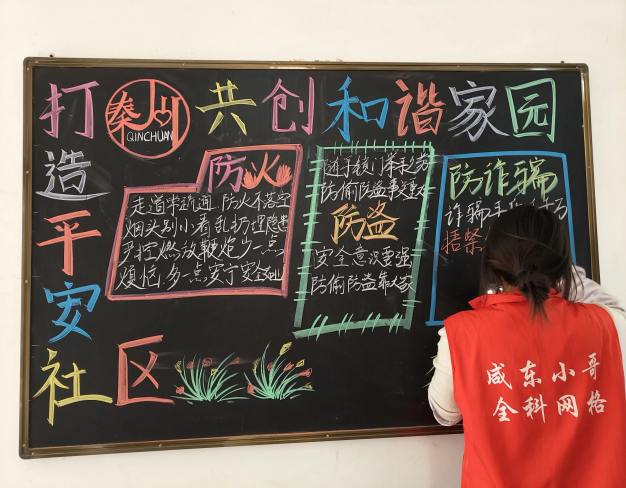 打
秦州
QINCHUAN
共创和谐家园
造
平
安
社区
防火
走道常疏通 防火不落空
烟头别小看 乱扔埋隐患
严控燃放鞭炮少一点
烦恼 多一点安宁安全
随手锁门
防偷防盗事
防盗
安全意识要强
防偷防盗靠大家
防诈骗
诈骗手
捂紧
咸东小哥
全科网格